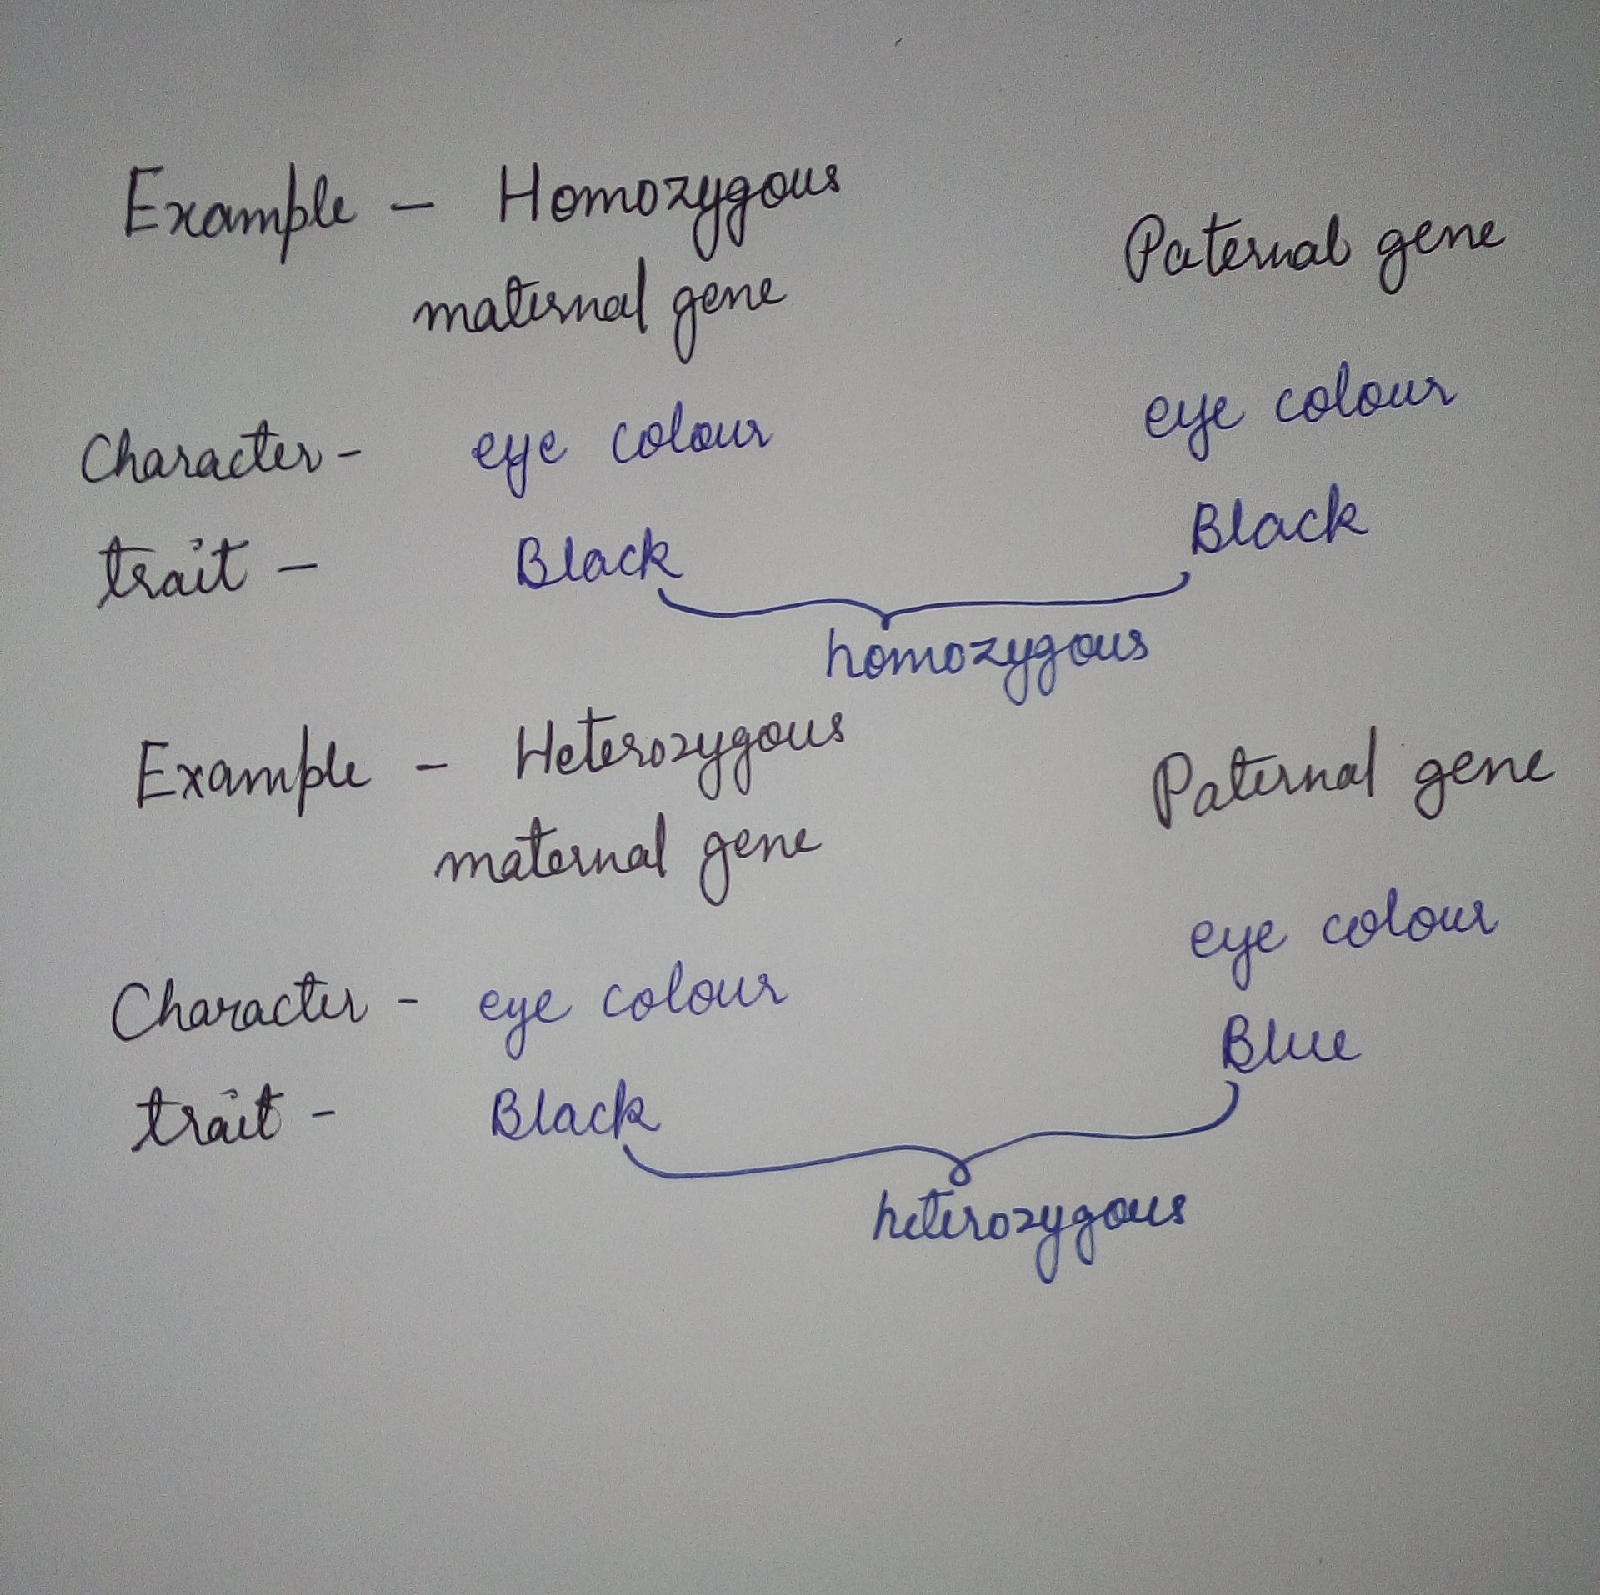 Example - Homozygous
maternal gene Paternal gene
Character - eye colour eye colour
trait - Black Black
homozygous
Example - Heterozygous
maternal gene Paternal gene
Character - eye colour eye colour
trait - Black Blue
heterozygous